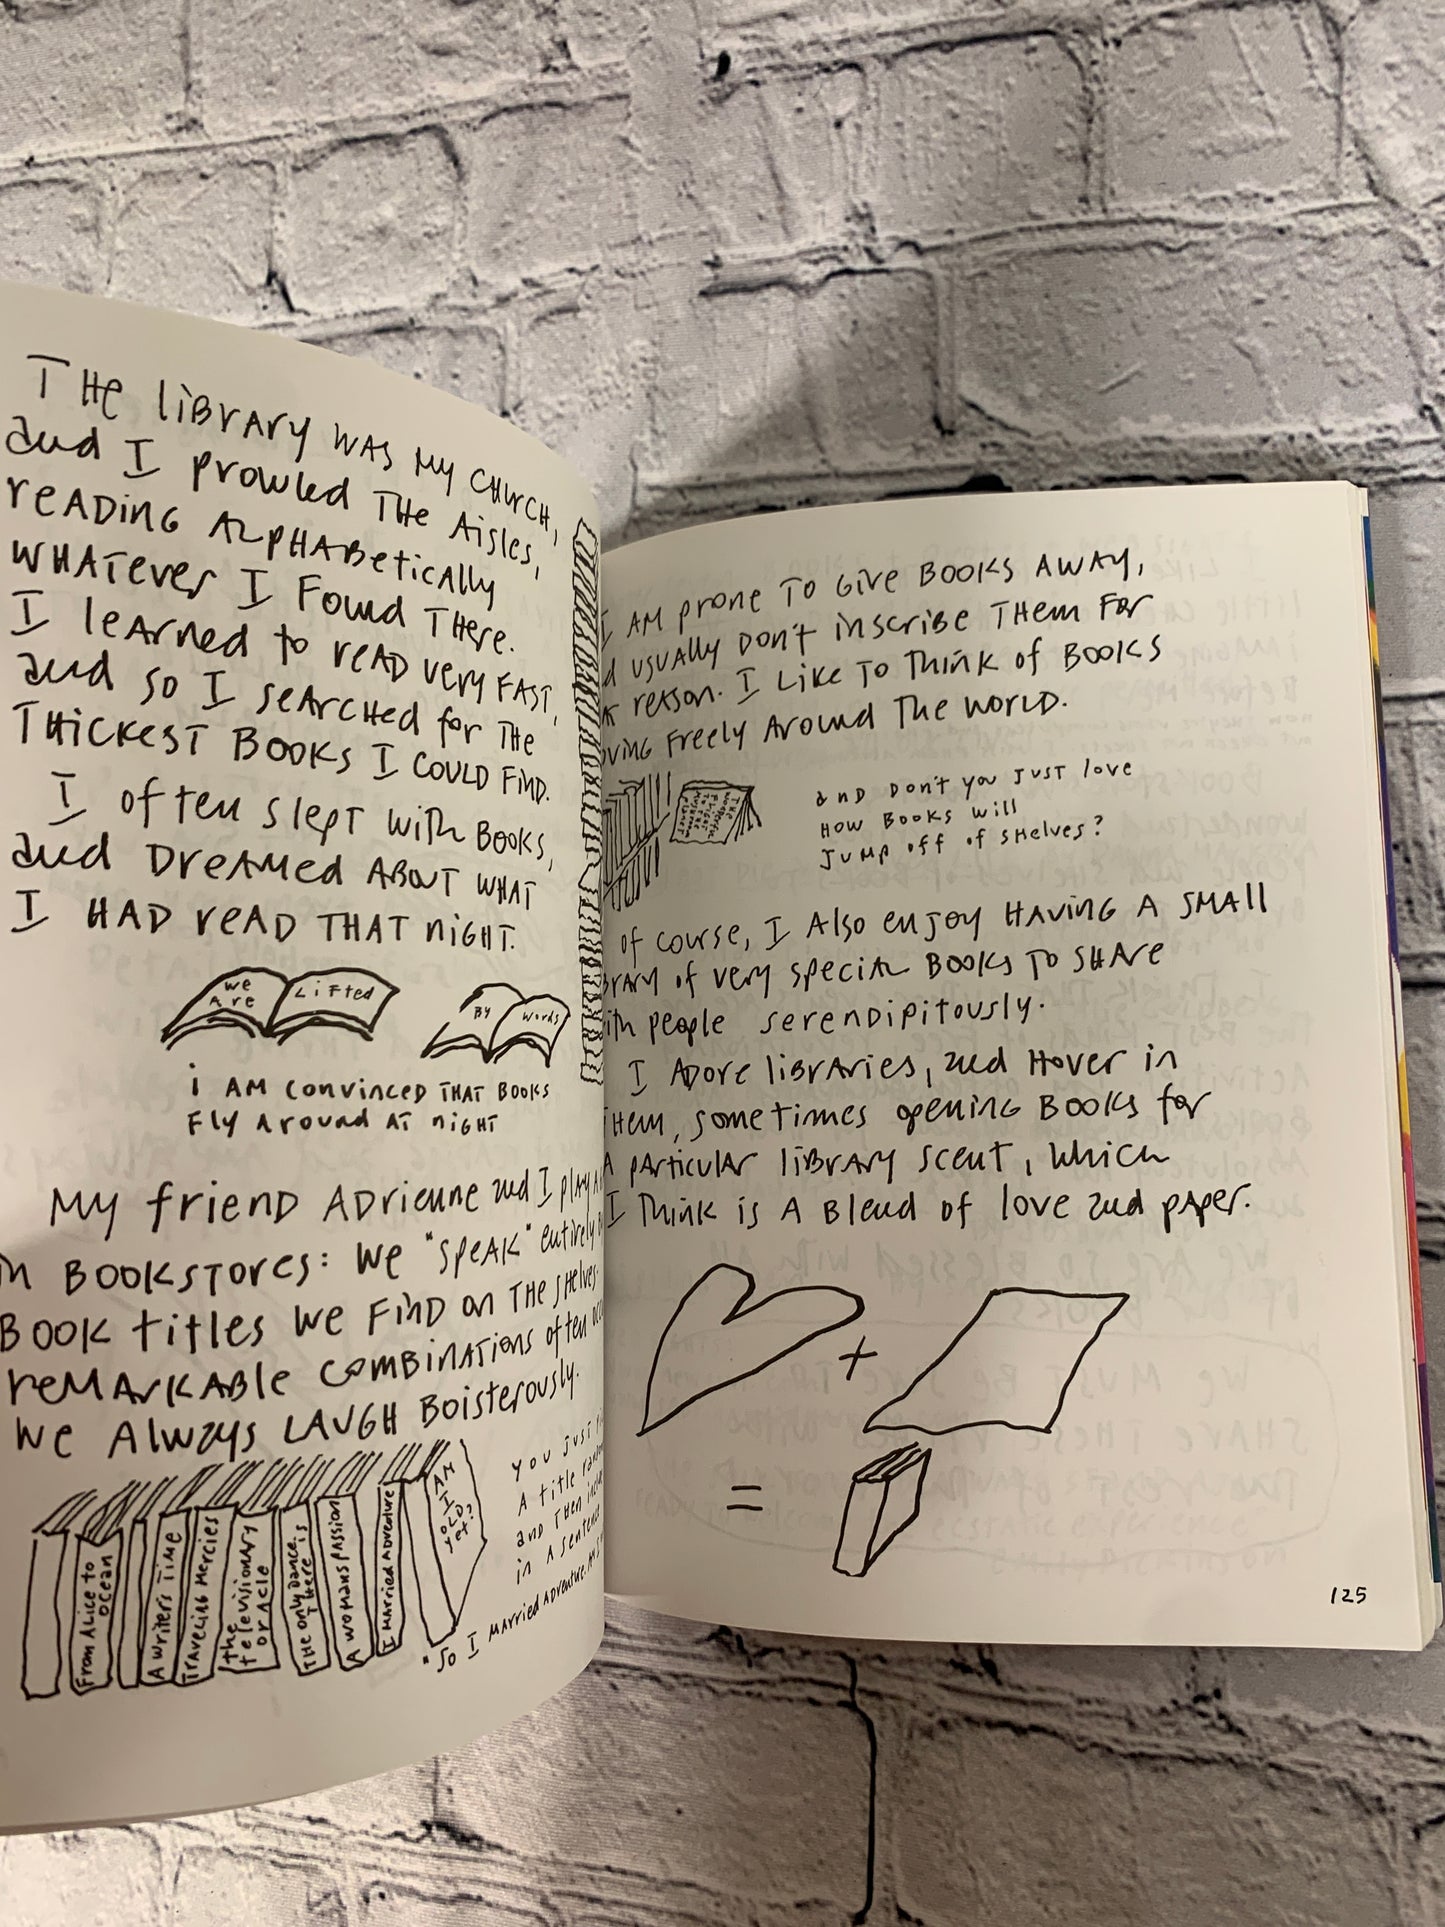 THE liBrArY WAS My CHUrCH,
and I prowled THE Aisles,
reADiNG ALpHABetically
WHATever I Found THere.
I leArned to reAD very FAST,
and so I seArcHed for THe
THickesT BOOKS I COULD FiND.
I often slept with BOOKS,
and DreAmed ABOUT WHAT
I HAD reAD THAT niGHT.
We Are LiFTed
By Words
i AM convinced THAT BOOKS
Fly Around AT niGHT
My friend ADrienne and I plAy
in BOOKSTOres: We "speAK" entirely
BOOK titles We FiND on THe sHelves.
reMArKABle comBinATions often
We AlwAys LAUGH Boisterously.
you just
A title
and THen
in A sentence
"So I MArried ADventure.
From Alice to Ocean
A Writers Time
TrAveling Mercies
the televisionAry orAcle
THe only DAnce THere is
A WomAns pAssion
I MArried ADventure
AM I OLD yet?
I AM prone TO Give BOOKS AWAY,
usuAlly Don't inscribe THem For
reason. I Like To Think of BOOKS
Freely Around The World.
and Don't you JUST love
How BOOKS will
Jump off of sHelves?
of course, I Also enjoy HAVING A SMAll
of very speciAl BOOKS To SHAre
people serendipitously.
I ADore liBrAries, and Hover in
THem, sometimes opening BOOKS for
A pArticulAr liBrAry scent, which
I Think is A Blend of love and pAper.
+
=
125